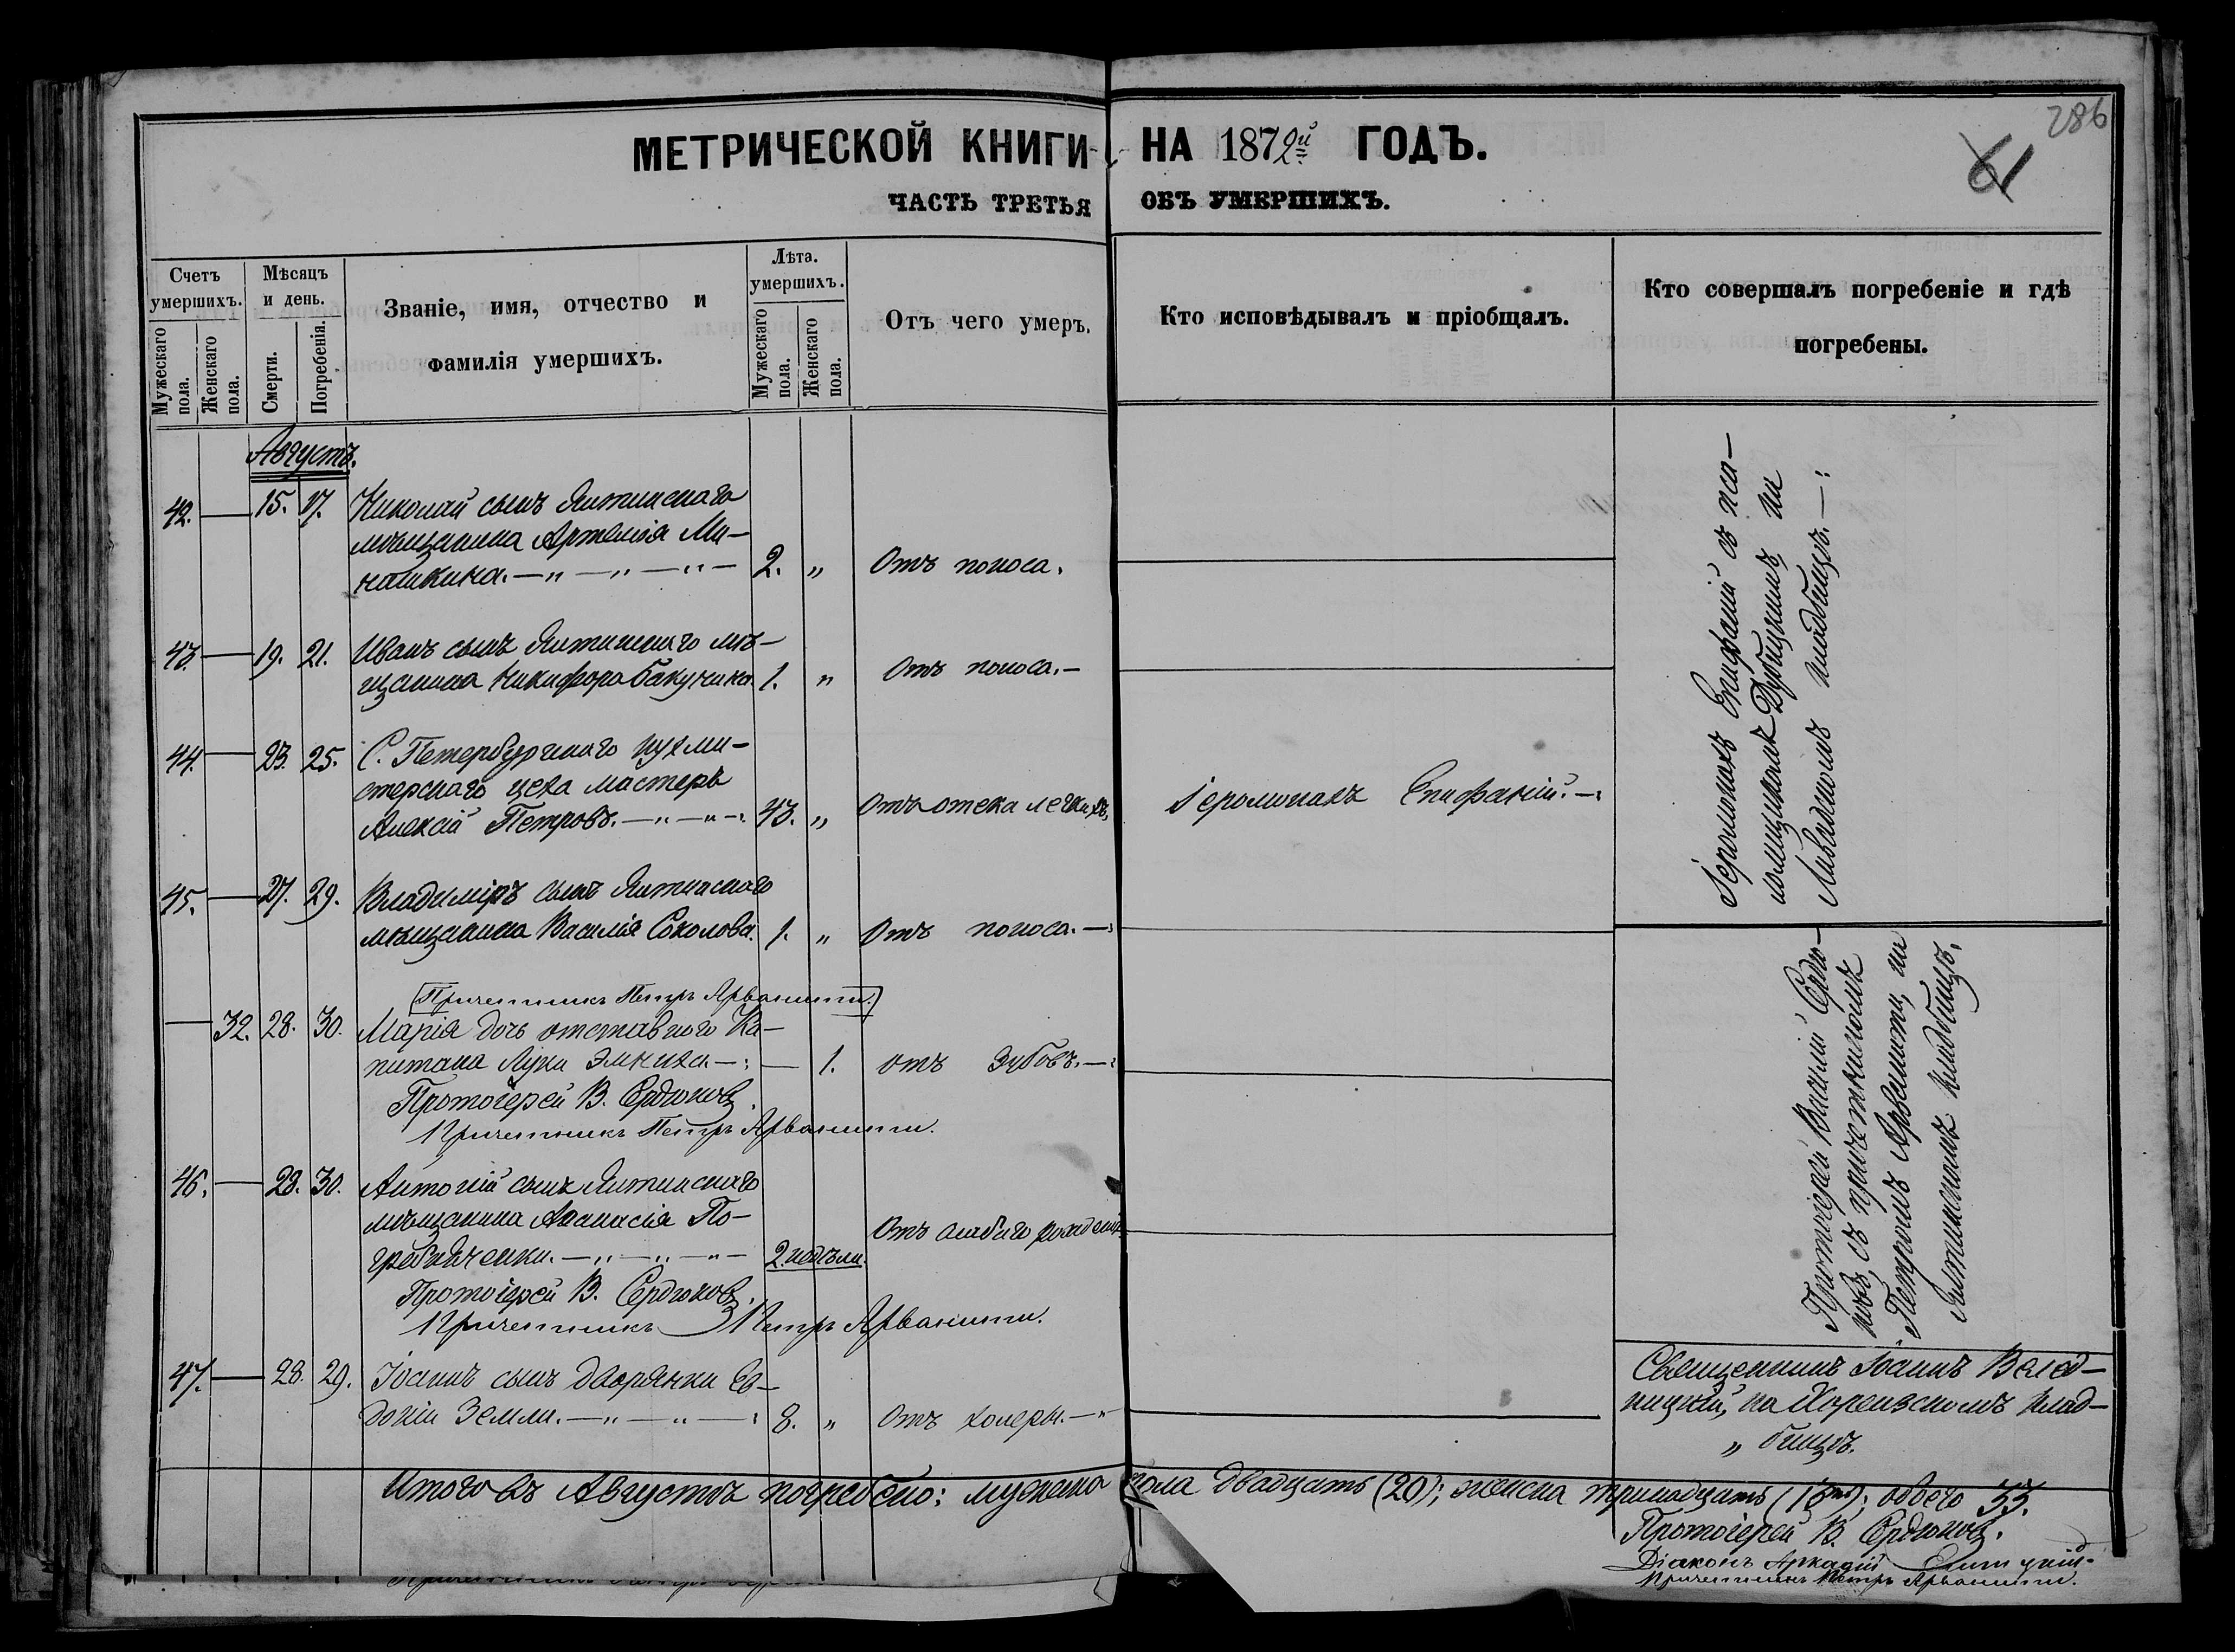 286
61
МЕТРИЧЕСКОЙ КНИГИ НА 1872й ГОДЪ.
ЧАСТЬ ТРЕТЬЯ ОБЪ УМЕРШИХЪ.
Счетъ умершихъ.
Мужескаго пола.
Женскаго пола.
Мѣсяцъ и день.
Смерти.
Погребенія.
Званіе, имя, отчество и
фамилія умершихъ.
Лѣта. умершихъ.
Мужескаго пола.
Женскаго пола.
Отъ чего умеръ.
Кто исповѣдывалъ и пріобщалъ.
Кто совершалъ погребеніе и гдѣ
погребены.
Августъ.
42. — 15. 17. Николай сынъ Ялтинскаго
мѣщанина Артемія Ми-
нашкина. — „ — „ — „ — 2. „ Отъ поноса.
43. — 19. 21. Иванъ сынъ Ялтинскаго мѣ-
щанина Никифора Бакучика. 1. „ Отъ поноса. —
44. — 23. 25. С. Петербургскаго кухми-
стерскаго цеха мастеръ
Алексій Петровъ. — „ — „ — 43. „ Отъ отека легкихъ. Іеромонахъ Епифаній. —
45. — 27. 29. Владиміръ сынъ Ялтинскаго
мѣщанина Василія Соколова. 1. „ Отъ поноса. —
Іеромонахъ Епифаній съ пса-
ломщикомъ Дубицкимъ на
Ливадскомъ кладбищѣ. —
Причетникъ Петръ Арванити.
— 32. 28. 30. Марія дочь отставного Ка-
питана Луки — — 1. отъ зубовъ. —
Протоіерей В. Сердюковъ.
Причетникъ Петръ Арванити.
46. — 28. 30. Антоній сынъ Ялтинскаго
мѣщанина Аѳанасія По-
гребняченки. — „ — „ — „ — 2. недѣли. Отъ слабаго рожденія
Протоіерей В. Сердюковъ.
Причетникъ Петръ Арванити.
Протоіерей Василій Сердю-
ковъ, съ причетникомъ
Петромъ Арванити, на
Ялтинскомъ кладбищѣ.
47. — 28. 29. Іоаннъ сынъ дворянки Ев-
докіи Земли. — „ — „ — 8. „ Отъ холеры. —
Священникъ Іоаннъ Велед-
ницкій, на Кореизскомъ клад-
„ бищѣ.
Итого въ Августѣ погребено: мужеска пола двадцать (20); женска тринадцать (13ть); обоего 33.
Протоіерей В. Сердюковъ.
Діаконъ Аркадій
Причетникъ Петръ Арванити.